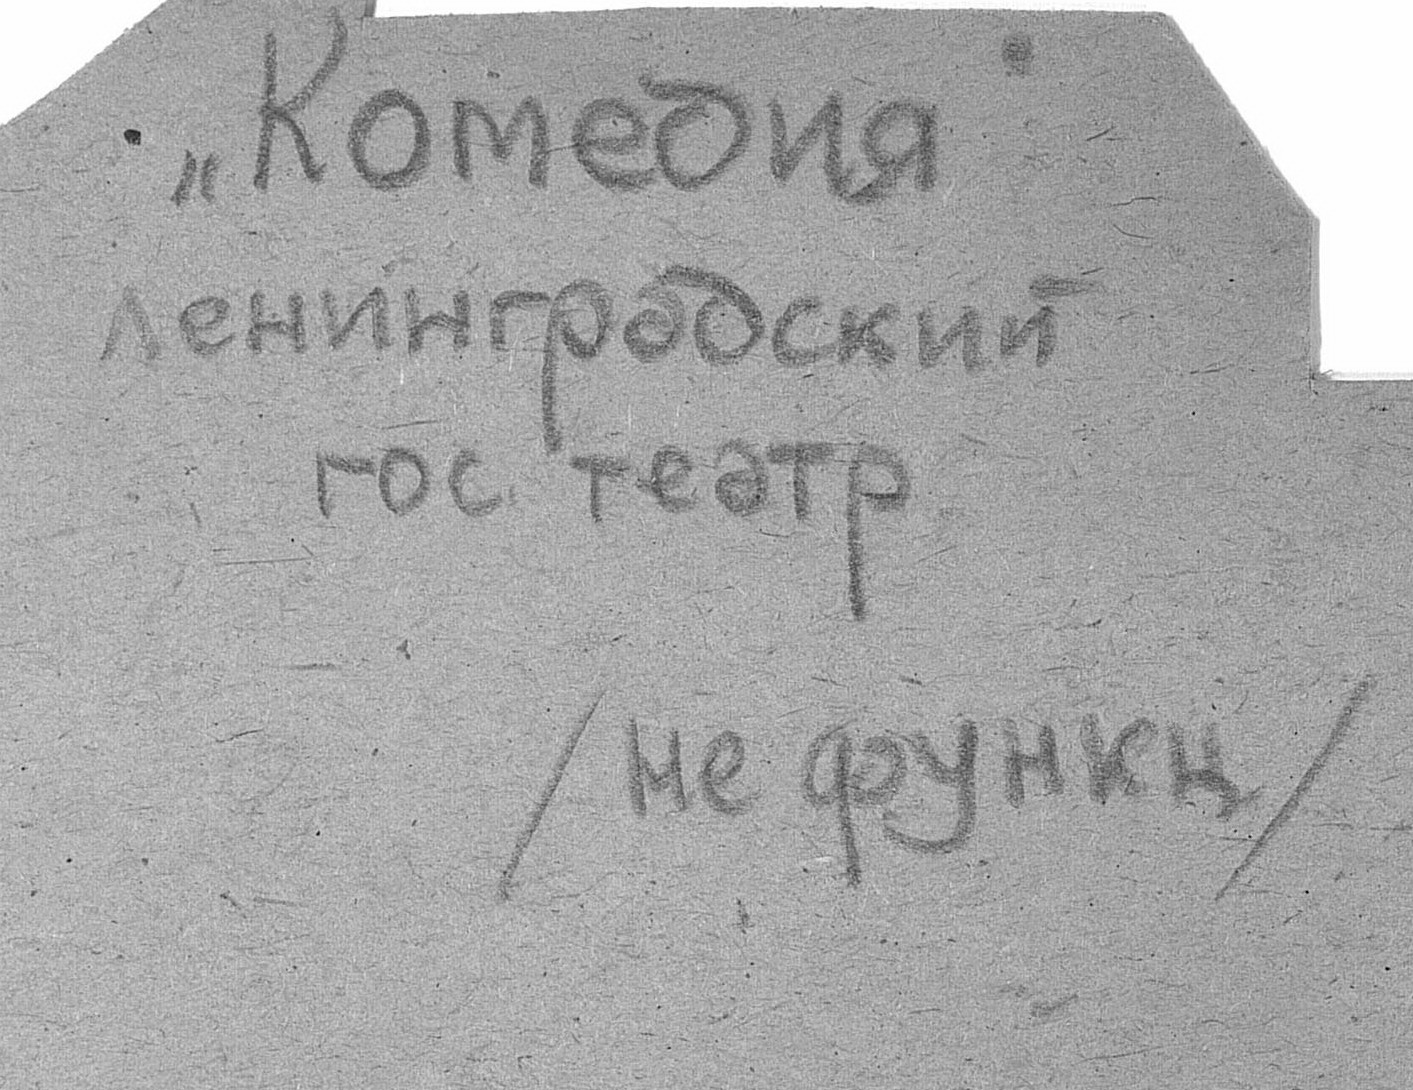 „Комедия"
ленинградский
гос театр
/не функц/